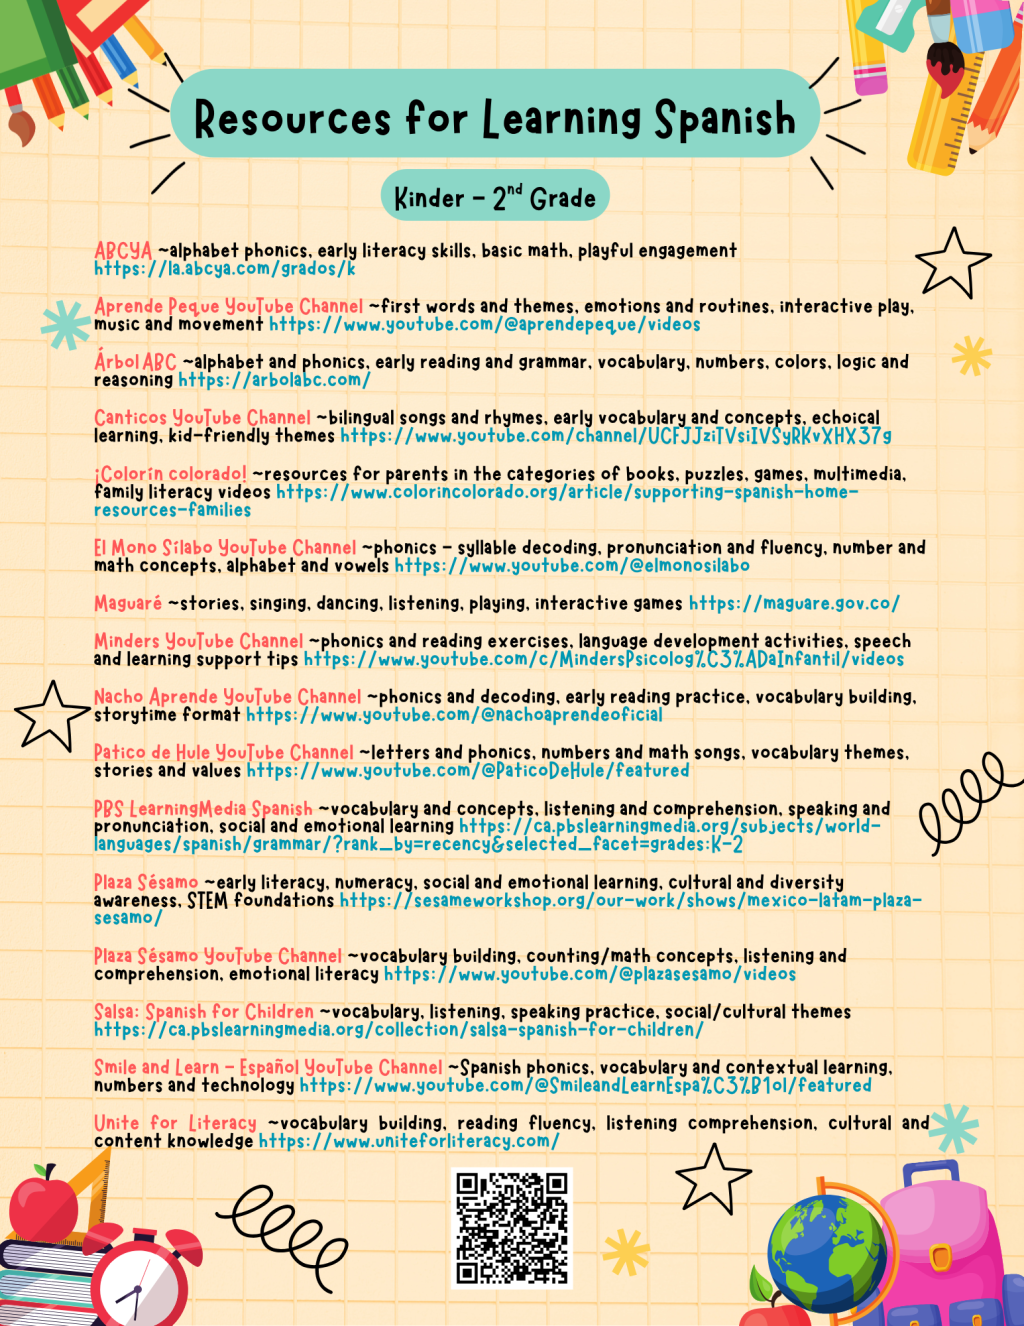 Resources for Learning Spanish
Kinder – 2nd Grade
ABCYA ~alphabet phonics, early literacy skills, basic math, playful engagement
https://la.abcya.com/grados/k
Aprende Peque YouTube Channel ~first words and themes, emotions and routines, interactive play,
music and movement https://www.youtube.com/@aprendepeque/videos
Árbol ABC ~alphabet and phonics, early reading and grammar, vocabulary, numbers, colors, logic and
reasoning https://arbolabc.com/
Canticos YouTube Channel ~bilingual songs and rhymes, early vocabulary and concepts, echoical
learning, kid-friendly themes https://www.youtube.com/channel/UCFJJziTVsiIVSyRKvXHX37g
¡Colorín colorado! ~resources for parents in the categories of books, puzzles, games, multimedia,
family literacy videos https://www.colorincolorado.org/article/supporting-spanish-home-
resources-families
El Mono Sílabo YouTube Channel ~phonics – syllable decoding, pronunciation and fluency, number and
math concepts, alphabet and vowels https://www.youtube.com/@elmonosilabo
Maguaré ~stories, singing, dancing, listening, playing, interactive games https://maguare.gov.co/
Minders YouTube Channel ~phonics and reading exercises, language development activities, speech
and learning support tips https://www.youtube.com/c/MindersPsicolog%C3%ADaInfantil/videos
Nacho Aprende YouTube Channel ~phonics and decoding, early reading practice, vocabulary building,
storytime format https://www.youtube.com/@nachoaprendeoficial
Patico de Hule YouTube Channel ~letters and phonics, numbers and math songs, vocabulary themes,
stories and values https://www.youtube.com/@PaticoDeHule/featured
PBS LearningMedia Spanish ~vocabulary and concepts, listening and comprehension, speaking and
pronunciation, social and emotional learning https://ca.pbslearningmedia.org/subjects/world-
languages/spanish/grammar/?rank_by=recency&selected_facet=grades:K-2
Plaza Sésamo ~early literacy, numeracy, social and emotional learning, cultural and diversity
awareness, STEM foundations https://sesameworkshop.org/our-work/shows/mexico-latam-plaza-
sesamo/
Plaza Sésamo YouTube Channel ~vocabulary building, counting/math concepts, listening and
comprehension, emotional literacy https://www.youtube.com/@plazasesamo/videos
Salsa: Spanish for Children ~vocabulary, listening, speaking practice, social/cultural themes
https://ca.pbslearningmedia.org/collection/salsa-spanish-for-children/
Smile and Learn – Español YouTube Channel ~Spanish phonics, vocabulary and contextual learning,
numbers and technology https://www.youtube.com/@SmileandLearnEspa%C3%B1ol/featured
Unite for Literacy ~vocabulary building, reading fluency, listening comprehension, cultural and
content knowledge https://www.uniteforliteracy.com/